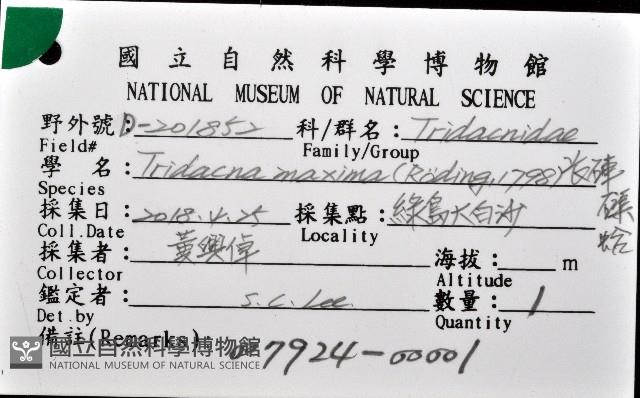 國立自然科學博物館
NATIONAL MUSEUM OF NATURAL SCIENCE
野外號：D-201852 科/群名：Tridacnidae
Field# Family/Group
學名：Tridacna maxima (Röding, 1798) 長硨磲蛤
Species
採集日：2018.4.25 採集點：綠島大白沙
Coll.Date Locality
採集者：黃興倬 海拔： m
Collector Altitude
鑑定者：S.C. Lee 數量：1
Det.by Quantity
備註(Remarks)
7924-00001
國立自然科學博物館
NATIONAL MUSEUM OF NATURAL SCIENCE